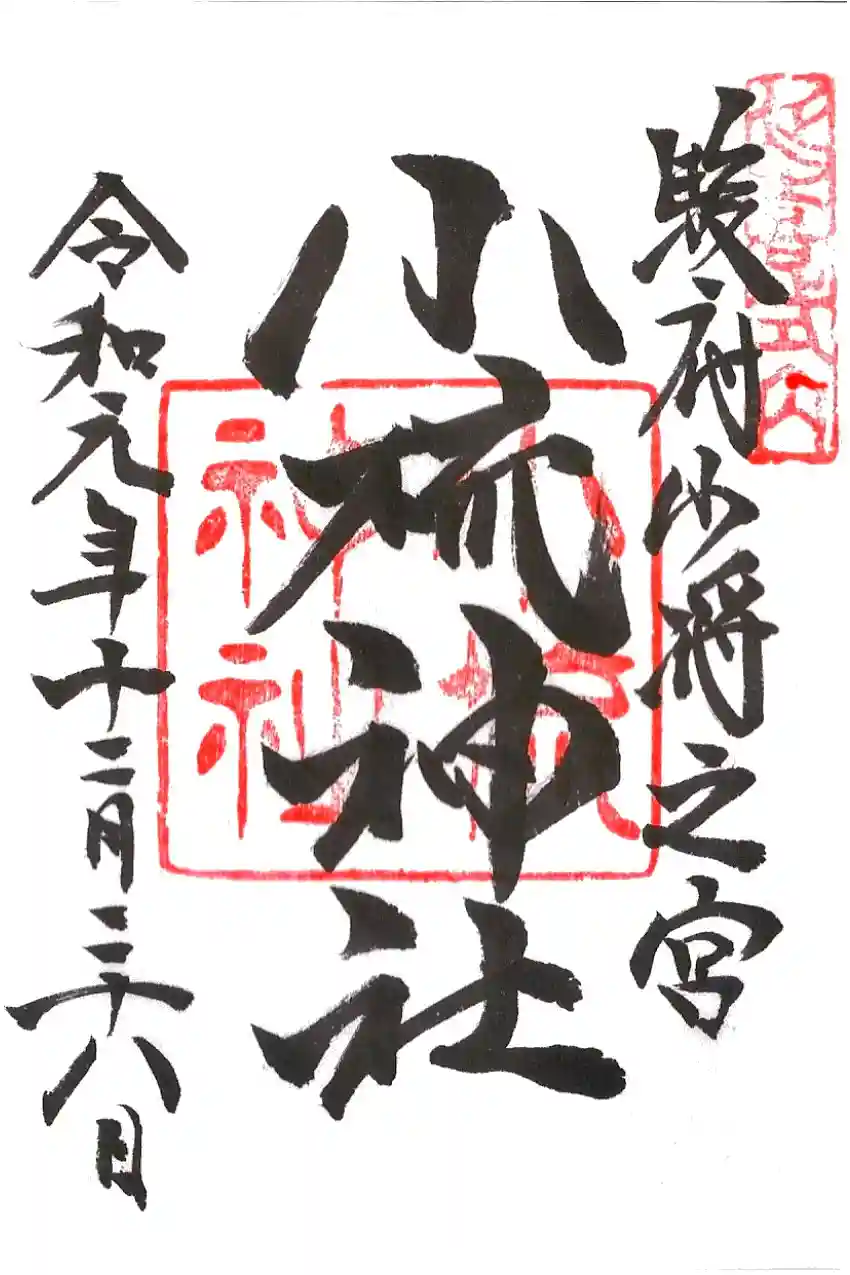 駿府少将之宮
小梳神社
令和元年十二月二十八日
小梳
神社